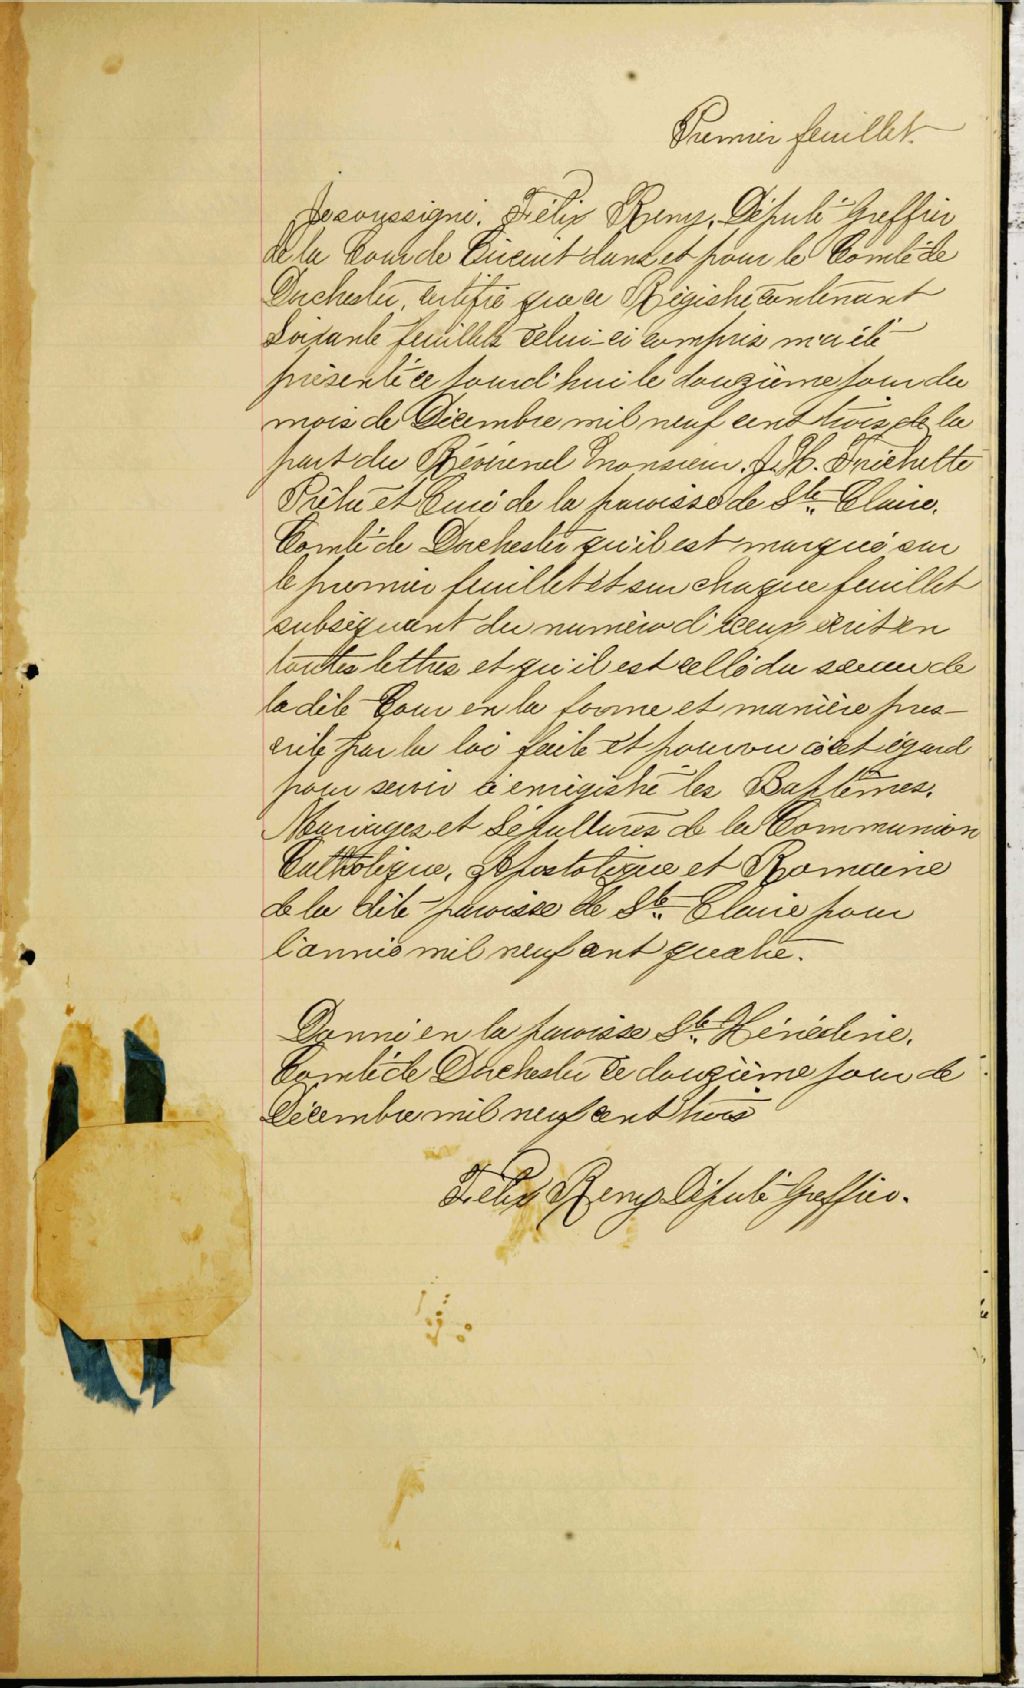 Premier feuillet.
Je soussigné, Félix Remy, Député Greffier
de la Cour de Circuit dans et pour le Comté de
Dorchester, certifie que ce Régistre contenant
Soixante feuillets celui-ci compris m'a été
présenté ce jourd'hui le douzième jour du
mois de Décembre mil neuf cent trois de la
part du Révérend Monsieur J. H. Fréchette
Prêtre et Curé de la paroisse de Ste Claire,
Comté de Dorchester qu'il est marqué sur
le premier feuillet et sur chaque feuillet
subséquant du numéro d'iceux écrit en
toutes lettres et qu'il est scellé du sceau de
la dite Cour en la forme et manière pres-
crite par la loi faite et pourvu à cet égard
pour servir à enrégistré les Baptêmes,
Mariages et Sépultures de la Communion
Catholique, Apostolique et Romaine
de la dite paroisse de Ste Claire pour
l'année mil neuf cent quatre.
Donné en la paroisse Ste Hénédine,
Comté de Dorchester ce douzième jour de
Décembre mil neuf cent trois
Félix Remy Député Greffier.